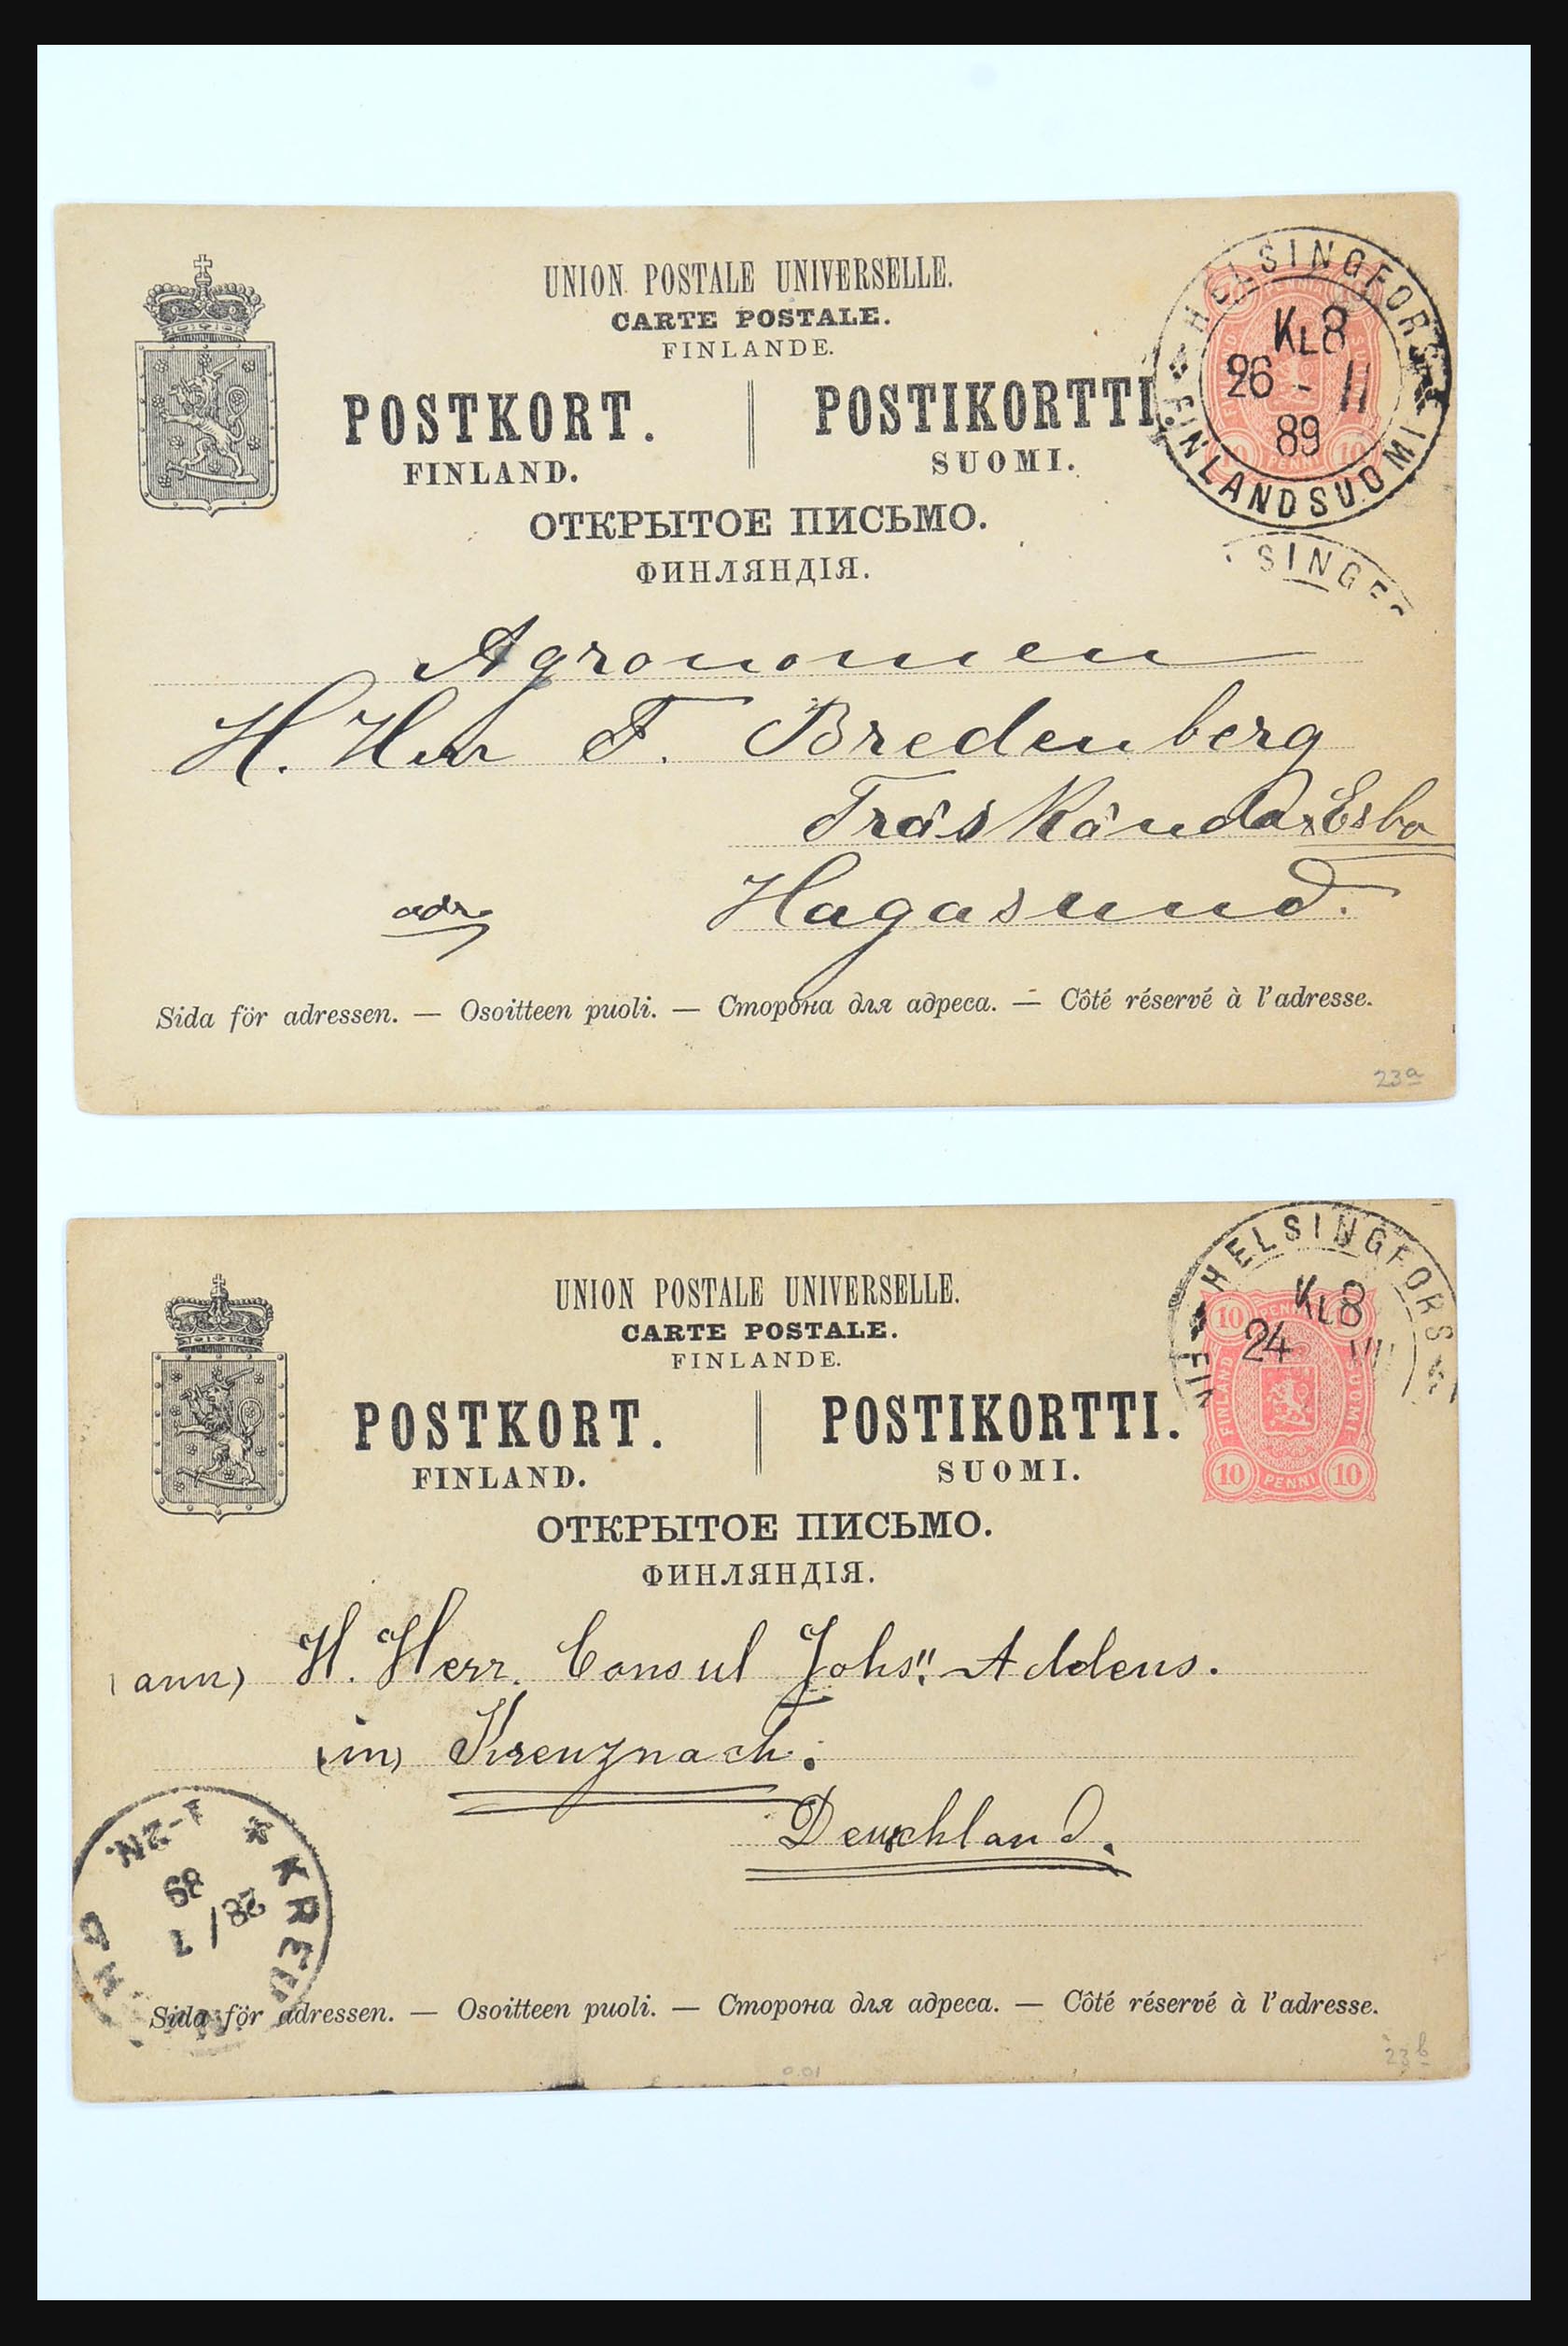 UNION POSTALE UNIVERSELLE.
CARTE POSTALE.
FINLANDE.
POSTKORT.
FINLAND.
POSTIKORTTI.
SUOMI.
ОТКРЫТОЕ ПИСЬМО.
ФИНЛЯНДІЯ.
HELSINGFORS
KL8
26 - 11
89
FINLAND SUOMI
SINGF
Agronomen
H. Herr F. Bredenberg
Träskända, Esbo
adr Hagasund.
Sida för adressen. — Osoitteen puoli. — Сторона для адреса. — Côté réservé à l'adresse.
23a
UNION POSTALE UNIVERSELLE.
CARTE POSTALE.
FINLANDE.
POSTKORT.
FINLAND.
POSTIKORTTI.
SUOMI.
ОТКРЫТОЕ ПИСЬМО.
ФИНЛЯНДІЯ.
HELSINGFORS
KL8
24
FIN
10 PENNI 10
FINLAND SUOMI
10 PENNI 10
(ann) H. Herr. Consul Johs" Addens.
(in) Kreuznach.
Deuschland.
KREU
1-2N.
28/7
89
Sida för adressen. — Osoitteen puoli. — Сторона для адреса. — Côté réservé à l'adresse.
0.01
23b